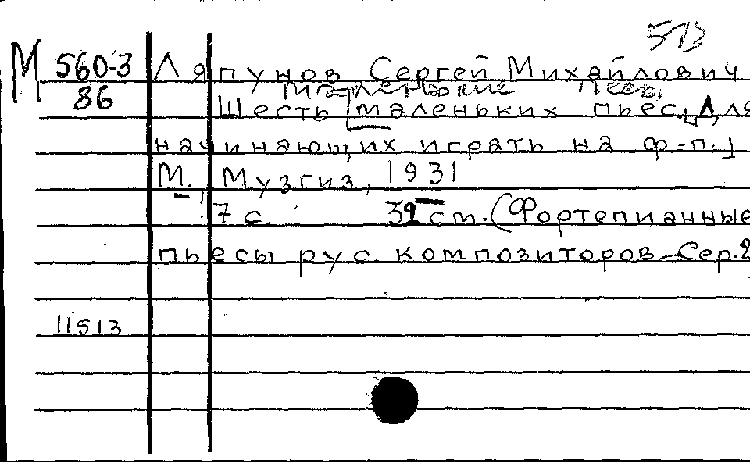 513
М 560-3 Ляпунов Сергей Михайлович
86 маленькие пьесы
Шесть [маленьких пьес, для
начинающих играть на ф.-п.]
М., Музгиз, 1931
7 с 39 см. (Фортепианные
пьесы рус. композиторов. Сер. 2
11513